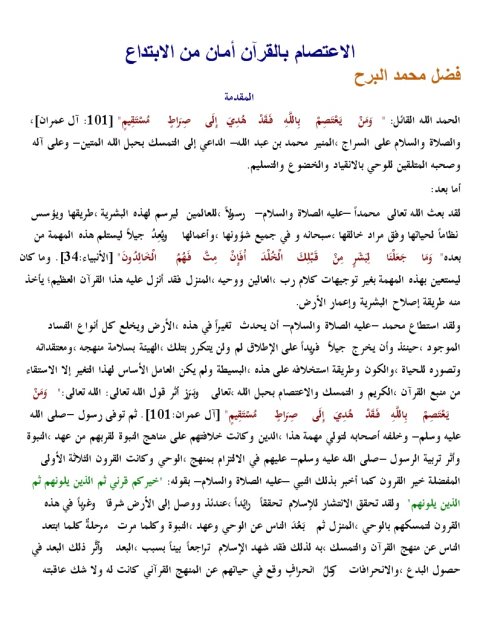 الاعتصام بالقرآن أمان من الابتداع
فضل محمد البرح
المقدمة
الحمد الله القائل: " وَمَنْ يَعْتَصِمْ بِاللَّهِ فَقَدْ هُدِيَ إِلَى صِرَاطٍ مُسْتَقِيمٍ" [101: آل عمران]،
والصلاة والسلام على السراج ،المنير محمد بن عبد الله– الداعي إلى التمسك بحبل الله المتين– وعلى آله
وصحبه المتلقين للوحي بالانقياد والخضوع والتسليم.
أما بعد:
لقد بعث الله تعالى محمداً –عليه الصلاة والسلام– رسولاً ،للعالمين ليرسم لهذه البشرية ،طريقها ويؤسس
نظاماً لحياتها وفق مراد خالقها ،سبحانه و في جميع شؤونها ،وأعمالها ويُعِدُّ جيلاً ليستلم هذه المهمة من
بعده" وَمَا جَعَلْنَا لِبَشَرٍ مِنْ قَبْلِكَ الْخُلْدَ أَفَإِنْ مِتَّ فَهُمُ الْخَالِدُونَ" [الأنبياء:34]. وما كان
ليستعين بهذه المهمة بغير توجيهات كلام رب ،العالين ووحيه ،المنزل فقد أنزل عليه هذا القرآن العظيم؛ يأخذ
منه طريقة إصلاح البشرية وإعمار الأرض.
ولقد استطاع محمد –عليه الصلاة والسلام– أن يحدث تغيراً في هذه ،الأرض ويخلع كل أنواع الفساد
الموجود ،حينئذ وأن يخرج جيلاً فريداً على الإطلاق لم ولن يتكرر بتلك ،الهيئة بسلامة منهجه ،ومعتقداته
وتصوره للحياة ،والكون وطريقة استخلافه على هذه ،البسيطة ولم يكن العامل الأساس لهذا التغير إلا الاستقاء
من منبع القرآن ،الكريم و التمسك والاعتصام بحبل الله ،تعالى وبَرَز أثر قول الله تعالى: الله تعالى:" وَمَنْ
يَعْتَصِمْ بِاللَّهِ فَقَدْ هُدِيَ إِلَى صِرَاطٍ مُسْتَقِيمٍ" [آل عمران:101]. ثم توفى رسول –صلى الله
عليه وسلم– وخلفه أصحابه لتولي مهمة هذا ،الدين وكانت خلافتهم على مناهج النبوة لقربهم من عهد ،النبوة
وأثر تربية الرسول –صلى الله عليه وسلم– عليهم في الالتزام بمنهج ،الوحي وكانت القرون الثلاثة الأولى
المفضلة خير القرون كما أخبر بذلك النبي –عليه الصلاة والسلام– بقوله: "خيركم قرني ثم الذين يلونهم ثم
الذين يلونهم" ولقد تحقق الانتشار للإسلام تحققاً رائداً ،عندئذ ووصل إلى الأرض شرقاً وغرباً في هذه
القرون لتمسكهم بالوحي ،المنزل ثم بَعُدَ الناس عن الوحي وعهد ،النبوة وكلما مرت مرحلةٌ كلما ابتعد
الناس عن منهج القرآن والتمسك ،به لذلك فقد شهد الإسلام تراجعاً بيناً بسبب ،البعد وأثَّر ذلك البعد في
حصول البدع ،والانحرافات كلُّ انحرافٍ وقع في حياتهم عن المنهج القرآني كانت له ولا شك عاقبته